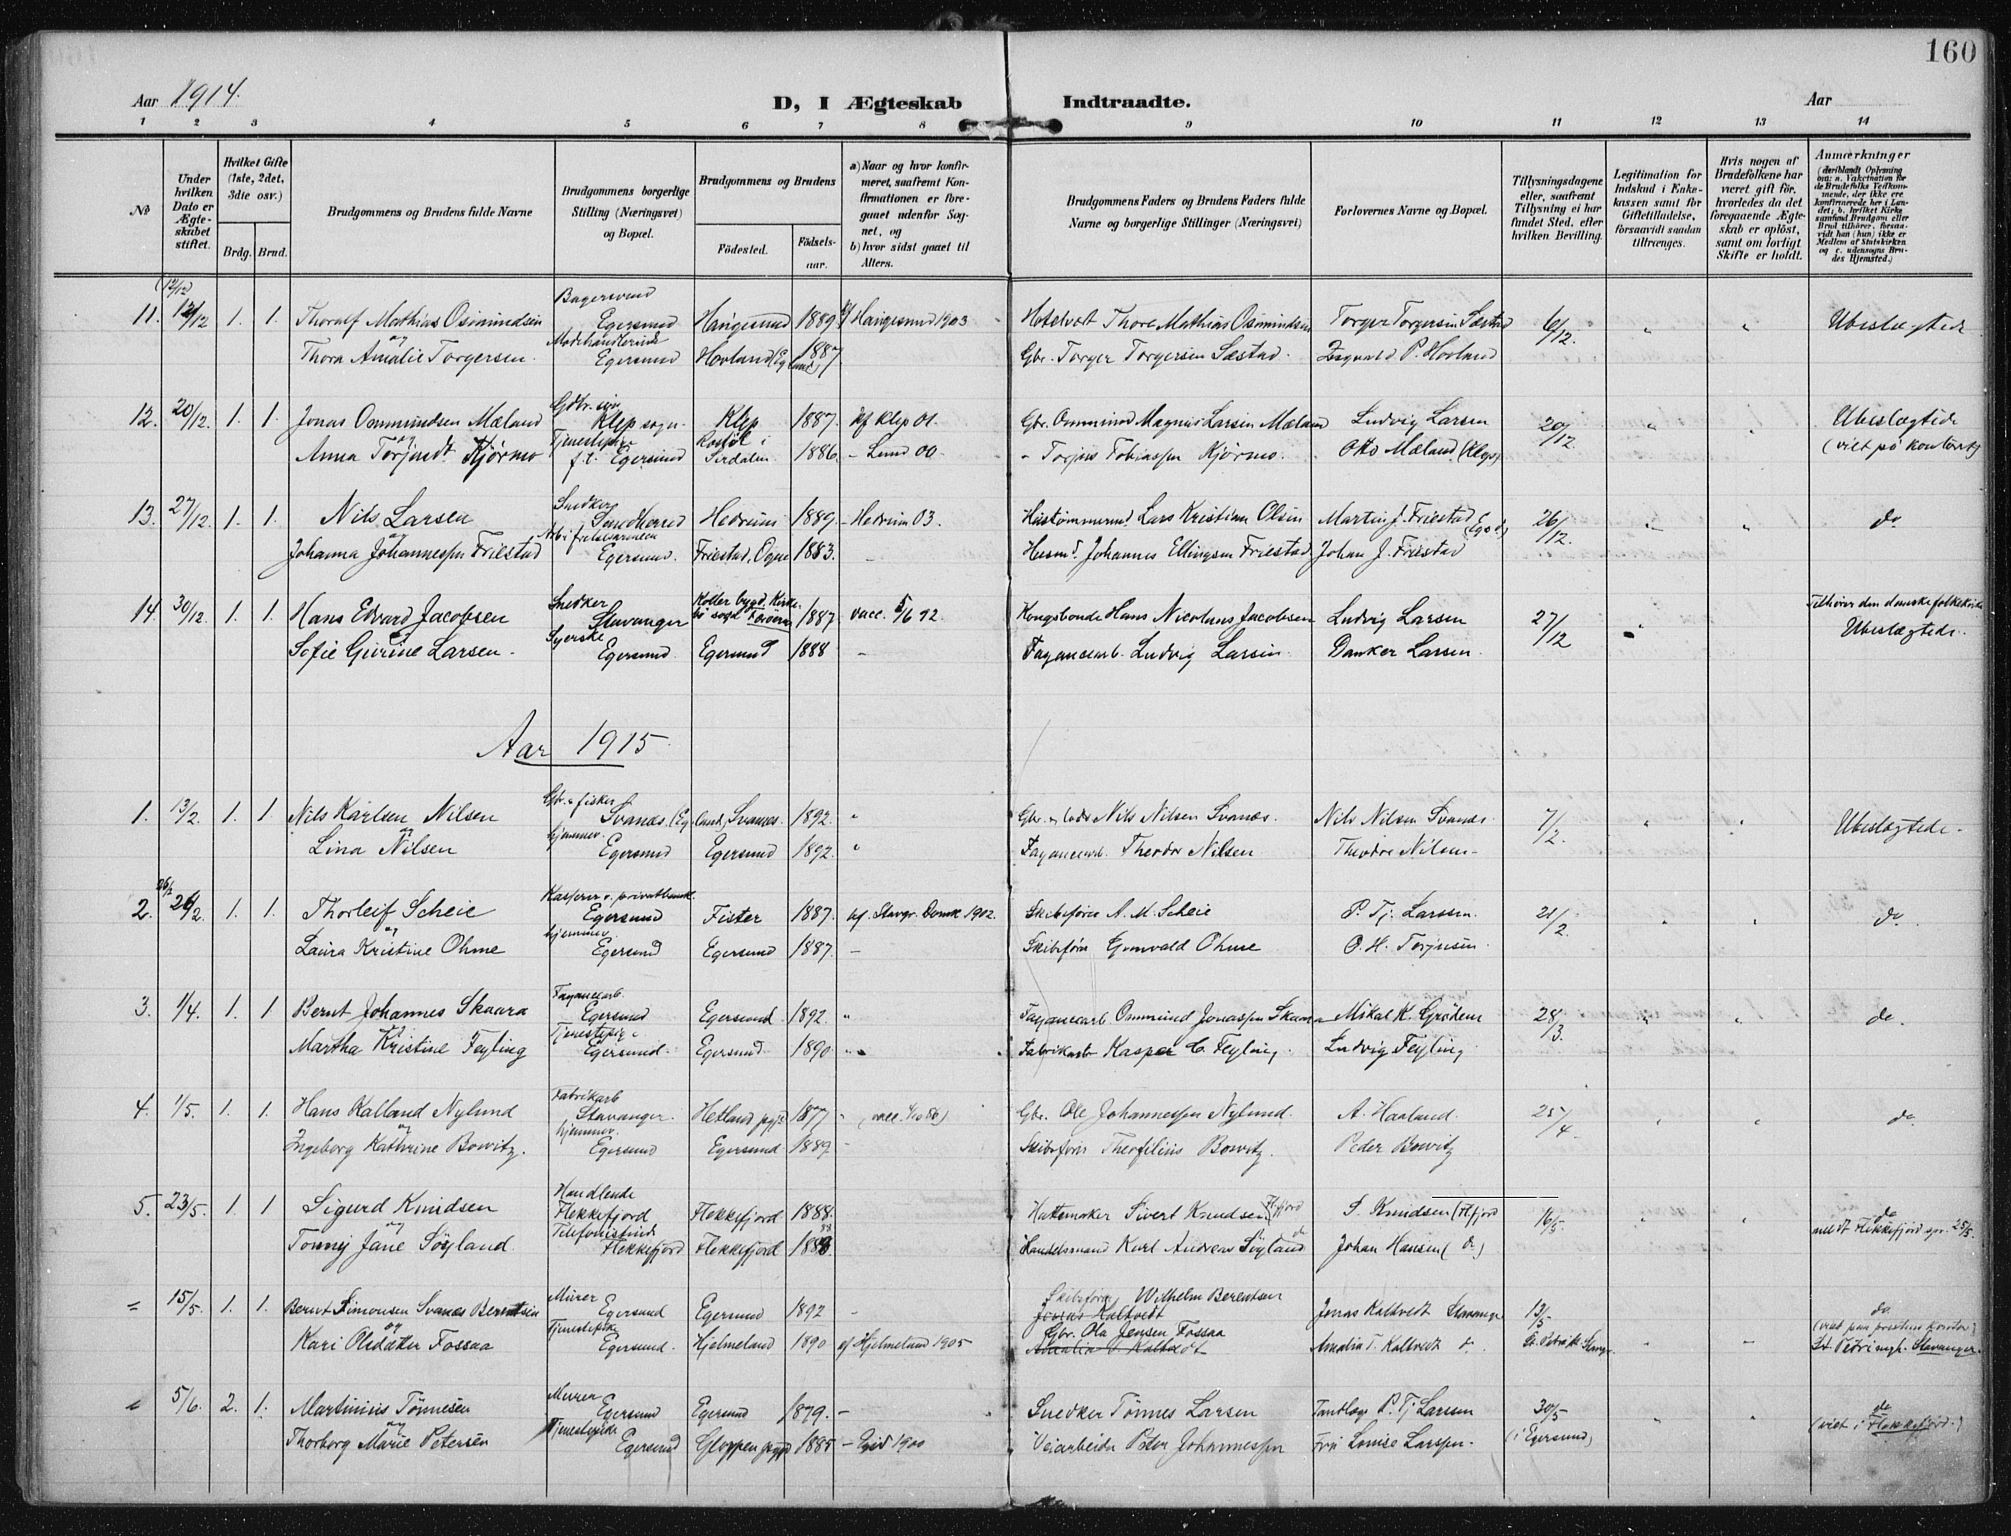 160
Aar 1914.
D, I Ægteskab Indtraadte.
Aar
1 2 3 4 5 6 7 8 9 10 11 12 13 14
№
Under hvilken Dato er Ægteskabet stiftet.
Hvilket Gifte (1ste, 2det, 3die osv.)
Brdg. Brud.
Brudgommens og Brudens fulde Navne
Brudgommens borgerlige Stilling (Næringsvei) og Bopæl.
Brudgommens og Brudens
Fødested. Fødselsaar.
a) Naar og hvor konfirmeret, saafremt Konfirmationen er foregaaet udenfor Sognet, og
b) hvor sidst gaaet til Alters.
Brudgommens Faders og Brudens Faders fulde Navne og borgerlige Stillinger (Næringsvei)
Forlovernes Navne og Bopæl.
Tillysningsdagene eller, saafremt Tillysning ei har fundet Sted, efter hvilken Bevilling.
Legitimation for Indskud i Enkekassen samt for Giftetilladelse, forsaavidt saadan tiltrænges.
Hvis nogen af Brudefolkene har været gift før, hvorledes da det foregaaende Ægteskab er opløst, samt om lovligt Skifte er holdt.
Anmærkninger
(deriblandt Oplysning om: a. Vaktination for de Brudefolks Vedkommende, der ikke ere konfirmerede her i Landet; b. hvilket Kirkesamfund Brudgom eller Brud tilhører, forsaavidt han (hun) ikke er Medlem af Statskirken og c. udensogns Brudes Hjemsted.)
(12/12
11. 12/12 1. 1. Thoralf Mathias Osmundsen Bagersvend Egersund Haugesund 1889 Haugesund 1903 Hotelvært Thore Mathias Osmundsen Torger Torgersen Sæstad 6/12. " " Ubeslægtede
og
Thora Amalie Torgersen. Modehandlerinde Egersund Hovland (Eg.land) 1887 Gbr. Torger Torgersen Sæstad. P. Hovland
12. 20/12. 1. 1. Jonas Ommundsen Mæland Gdbr. søn Klep sogn. Klep 1887. kf Klep 01. Gbr. Ommund Magnus Larsen Mæland Ludvig Larsen 20/12. " " Ubeslægtede
og
Anna Kjørmo Tjenestepige f.t. Egersund i Sirdalen 1886. - Lund 00. - Tobiassen Kjørmo. Otto Mæland (Klep) (viet på kontoret)
13. 27/12. 1. 1. Nils Larsen Snedker Sandherred Hedrum 1889 - Hedrum 03. Lars Kristian Olsen Martin J. Friestad (Egsd) 26/12. " " do
og
Johanna Johannessen Friestad Egersund. Friestad, Ogne 1883. - Husmd. Johannes Ellingsen Friestad Johan J. Friestad
14. 30/12. 1. 1. Hans Edvard Jacobsen Snedker Stavanger Kirkebø sogn Færøerne 1887 vacc. 5/6 92 Kongsbonde Hans Nicolaus Jacobsen Ludvig Larsen 27/12 Tilhører den danske folkekirke
og
Sofie Gurine Larsen. Syerske Egersund. Egersund 1888 - Fayancearb. Ludvig Larsen. Danker Larsen. Ubeslægtede.
Aar 1915.
1. 13/2. 1. 1. Nils Karlsen Nilsen Gbr. & fisker Svanæs. (Eg.land) Svanæs. 1892. " Gbr. & lods Nils Nilsen Svanæs. Nils Nilsen Svanæs. 7/2. " " Ubeslægtede.
og
Lina Nilsen hjemmev. Egersund Egersund 1892. " Fayancearb. Theodor Nilsen Theodor Nilsen
26/2
2. 26/2. 1. 1. Thorleif Scheie Kasserer v. privatbank Egersund Fister 1887. kf. Stavgr. Domk 1902. Skibsfører A. M. Scheie P. Tj. Larssen. 21/2. " " do.
og
Laura Kristine Ohme hjemmev. Egersund Egersund 1887. - Skibsfører Gunvald Ohme O. H. Torjusen.
3. 1/4. 1. 1. Bernt Johannes Skaara Fayancearb. Egersund Egersund. 1892. " Fayancearb Ommund Jonassen Skaara Mikal K. Grødem 28/3. " " do.
og
Martha Kristine Feyling Tjenestepige Egersund. Egersund. 1890 " Fabrikarb Kasper C. Feyling. Ludvig Feyling.
4. 1/5. 1. 1. Hans Kalland Nylund Fabrikarb Stavanger. Hetland pgjd 1877 (vacc. 4/10 86) Gbr. Ole Johannessen Nylund. A. Haaland. 25/4. " " do.
og
Ingeborg Kathrine Bowitz. hjemmev. Egersund Egersund 1889 - Skibsfører Theofilius Bowitz. Peder Bowitz
5. 23/5. 1. 1. Sigurd Knudsen Handlende Flekkefjord Flekkefjord 1888. Hattemaker Sivert Knudsen (Flfjord S. Knudsen (Flfjord 16/5. do
og
Tonny Jane Søyland. Telefonistinde Flekkefjord Flekkefjord 1888 Handelsmand Karl Andreas Søyland do Johan Hansen (do) meldt Flekkefjord spr. 25/5.
" 15/5. 1. 1. Bernt Simonsen Svanæs Berentsen Murer Egersund Egersund 1892 - Skibsfører Wilhelm Berentsen Jonas Kaltvedt Jonas Kaltvedt Stavanger 13/5 do
og
Kari Olsdatter Fossaa Tjenestepike Egersund. Hjelmeland 1890 kf Hjelmeland 1905 Gbr. Ola Jensen Fossaa Amalia T. Kaltvedt Amalia T. Kaltvedt do. St. Petrik. Stavgr. " - (viet paa prestens kontor) St Petri mgh. Stavanger.
" 5/6. 2. 1. Martinius Tønnesen Murer Egersund Egersund 1879. - Snedker Tønnes Larsen Tandlæge P. Tj Larsen 30/5 " " do
og
Thorborg Marie Petersen Tjenestepike Egersund Gloppen pgjd 1885 - 1900 Veiarbeider Peter Johannessen Frøi Louise Larssen. (i Egersund) (viet i Flekkefjord.)